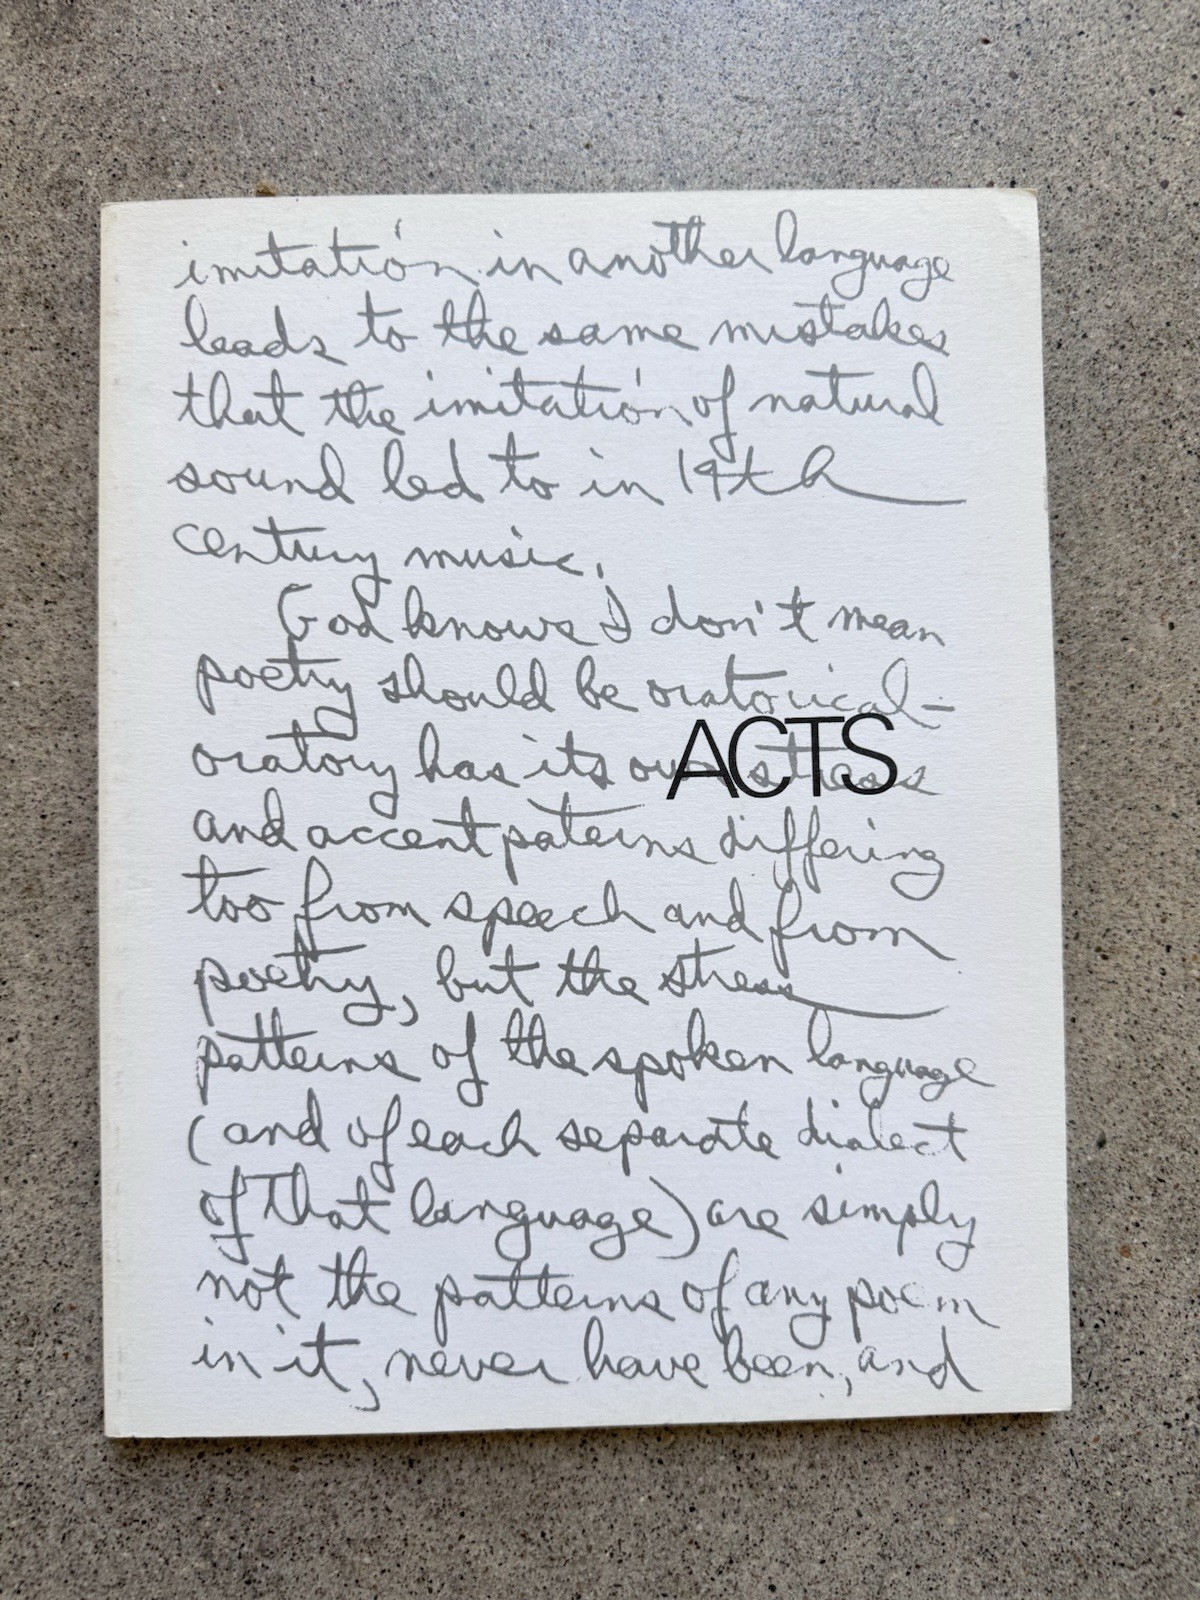 imitation in another language
leads to the same mistakes
that the imitation of natural
sound led to in 19th
century music.
God knows I don't mean
poetry should be oratorical—
oratory has its own stress
ACTS
and accent paterns differing
too from speech and from
poetry, but the stress
patterns of the spoken language
(and of each separate dialect
of that language) are simply
not the patterns of any poem
in it, never have been, and